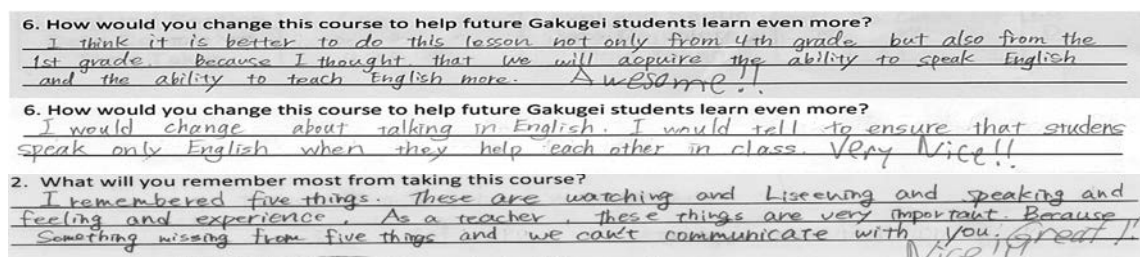 6. How would you change this course to help future Gakugei students learn even more?
I think it is better to do this lesson not only from 4th grade but also from the
1st grade. Because I thought that we will aopuire the ability to speak English
and the ability to teach English more. Awesome!!
6. How would you change this course to help future Gakugei students learn even more?
I would change about talking in English. I would tell to ensure that studens
speak only English when they help each other in class. Very Nice!!
2. What will you remember most from taking this course?
I remembered five things. These are watching and Liseening and speaking and
feeling and experience. As a teacher, these things are very important. Because
Something missing from five things and we can't communicate with you. Great!!
Nice!!